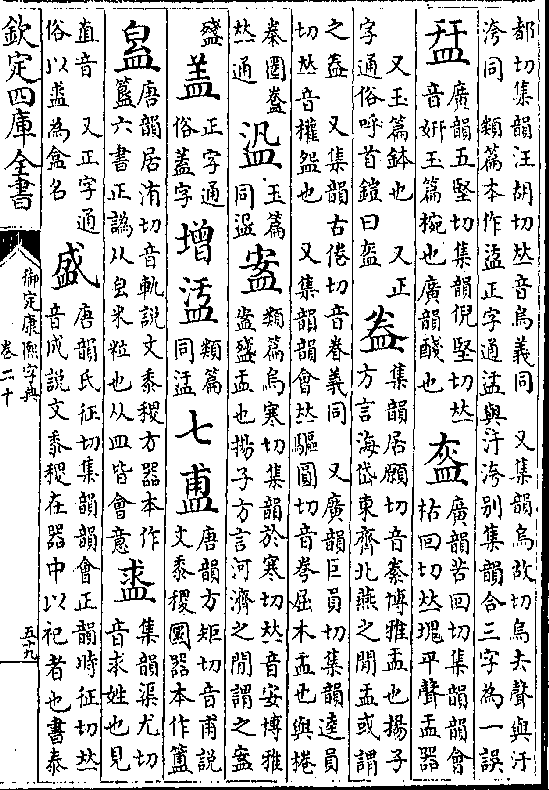 都切集韻汪胡切𠀤音烏義同 又集韻烏故切烏去聲與汙
洿同 類篇本作盓正字通盓與汙洿別集韻合三字爲一誤
㿼廣韻五堅切集韻倪堅切𠀤音姸玉篇椀也廣韻醆也
盔廣韻苦回切集韻韻會枯回切𠀤塊平聲盂器
又玉篇鉢也 又正字通俗呼首鎧曰盔
𥁠集韻居願切音𣓌博雅盂也揚子方言海岱東齊北燕之閒盂或謂
之𥁠 又集韻古倦切音眷義同 又廣韻巨員切集韻逵員
切𠀤音權盌也 又集韻韻會𠀤驅圓切音弮屈木盂也與棬
桊圈𥁠𠀤通
㴁玉篇同盪
盇類篇烏寒切集韻於寒切𠀤音安博雅盎𥂝盂也揚子方言河濟之閒謂之
盖正字通俗蓋字
增
㴀類篇同盓
七
盙唐韻方矩切音甫說文黍稷圜器本作簠
𥁋唐韻居洧切音軌說文黍稷方器本作簋六書正譌从皀米粒也从皿皆會意
盚集韻渠尤切音求姓也見
直音 又正字通俗以盚爲盒名
盛唐韻氏征切集韻韻會正韻時征切𠀤音成說文黍稷在器中以祀者也書泰
欽定四庫全書
御定康熙字典
卷二十
五十九